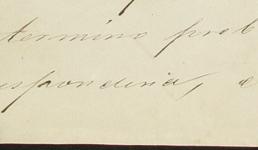 termino prob
espondencia, e